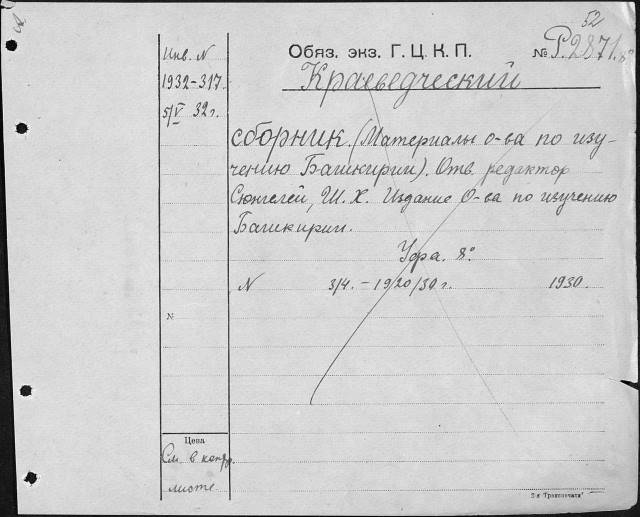 52
Обяз. экз. Г. Ц. К. П. № Р.2871. 8°
Инв. N
1932-317.
5/V 32 г.
Краеведческий
сборник. (Материалы о-ва по изу-
чению Башкирии). Отв. редактор
Сюнгелей, Ш. Х. Издание О-ва по изучению
Башкирии.
Уфа. 8°
N 3/4. – 1920/30 г. 1930.
№
Цена
См. в контр.
листе
2-я "Транспечать"